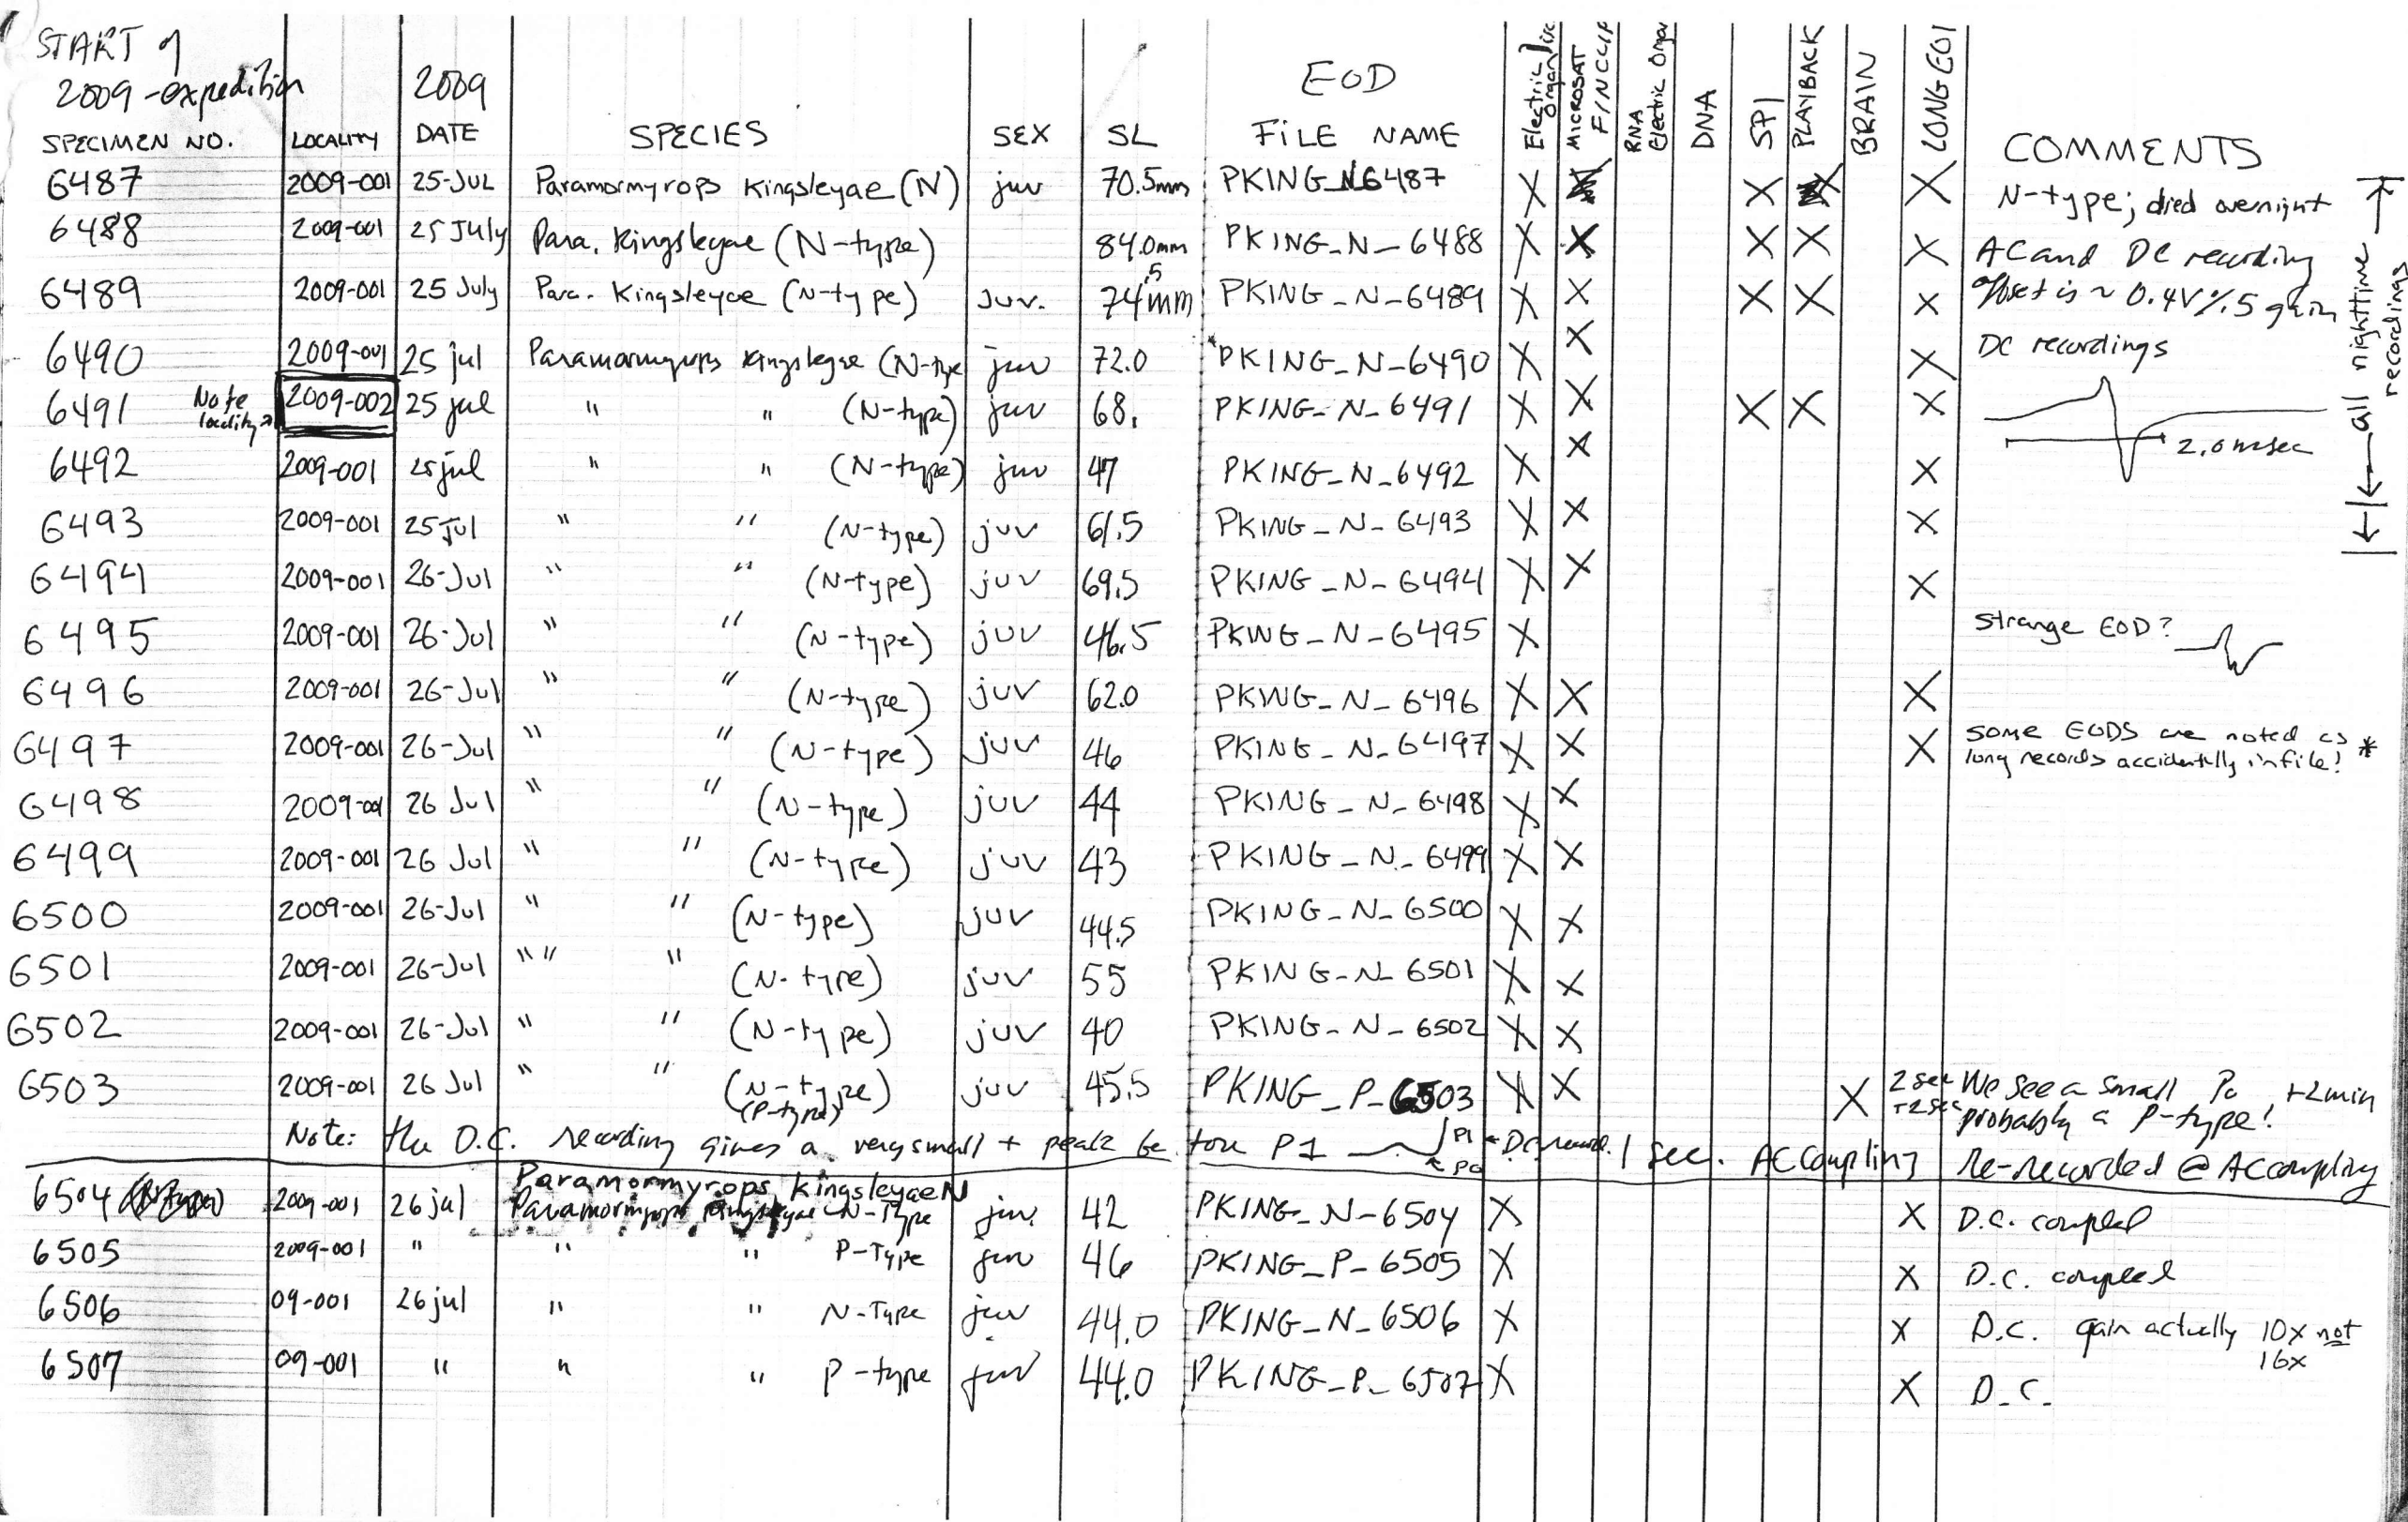 START of
2009-expedition
2009
EOD
SPECIMEN NO. LOCALITY DATE SPECIES SEX SL FILE NAME Electric Organ Disc MICROSAT FINCLIP RNA Electric Organ DNA SPI PLAYBACK BRAIN LONG EOD COMMENTS
6487 2009-001 25-JUL Paramormyrops kingsleyae (N) juv 70.5mm PKING_N6487 X X X X X N-type; died overnight
6488 2009-001 25 July Para. kingsleyae (N-type) 84.0mm PKING_N_6488 X X X X X AC and DC recording
6489 2009-001 25 July Para. Kingsleyae (N-type) Juv. 74.5mm PKING_N_6489 X X X X X offset is ~ 0.4V %.5 gain
6490 2009-001 25 jul Paramormyrops kingsleyae (N-type juv 72.0 *PKING_N_6490 X X X DC recordings
6491 Note locality→ 2009-002 25 jul " " (N-type) juv 68. PKING_N_6491 X X X X X
2.0 msec
←all nighttime→ recordings
6492 2009-001 25 jul " " (N-type) juv 47 PKING_N_6492 X X X
6493 2009-001 25 Jul " " (N-type) juv 61.5 PKING_N_6493 X X X
6494 2009-001 26-Jul " " (N-type) juv 69.5 PKING_N_6494 X X X
6495 2009-001 26-Jul " " (N-type) juv 46.5 PKING_N_6495 X strange EOD?
6496 2009-001 26-Jul " " (N-type) juv 62.0 PKING_N_6496 X X X
6497 2009-001 26-Jul " " (N-type) juv 46 PKING_N_6497 X X X some EODS are noted as *
long records accidentally in file!
6498 2009-001 26 Jul " " (N-type) juv 44 PKING_N_6498 X X
6499 2009-001 26 Jul " " (N-type) juv 43 PKING_N_6499 X X
6500 2009-001 26-Jul " " (N-type) juv 44.5 PKING_N_6500 X X
6501 2009-001 26-Jul " " " (N-type) juv 55 PKING_N_6501 X X
6502 2009-001 26-Jul " " (N-type) juv 40 PKING_N_6502 X X
6503 2009-001 26 Jul " " (N-type) juv 45.5 PKING_P_6503 X X X 2 sec We see a small Po +2min
(P-type) +2sec probably a P-type!
Note: the D.C. recording gives a very small + peak before P1 P1 ←Po ←DC record. 1 sec. AC Coupling Re-recorded @ AC coupling
Paramormyrops kingsleyae N
6504 2009-001 26 jul Paramormyrops kingsleyae N-Type juv. 42 PKING_N_6504 X X D.C. coupled
6505 2009-001 " " " P-Type juv 46 PKING_P_6505 X X D.C. coupled
6506 09-001 26 jul " " N-Type juv 44.0 PKING_N_6506 X X D.C. gain actually 10x not
16x
6507 09-001 " " " P-type juv 44.0 PKING_P_6507 X X D.C.